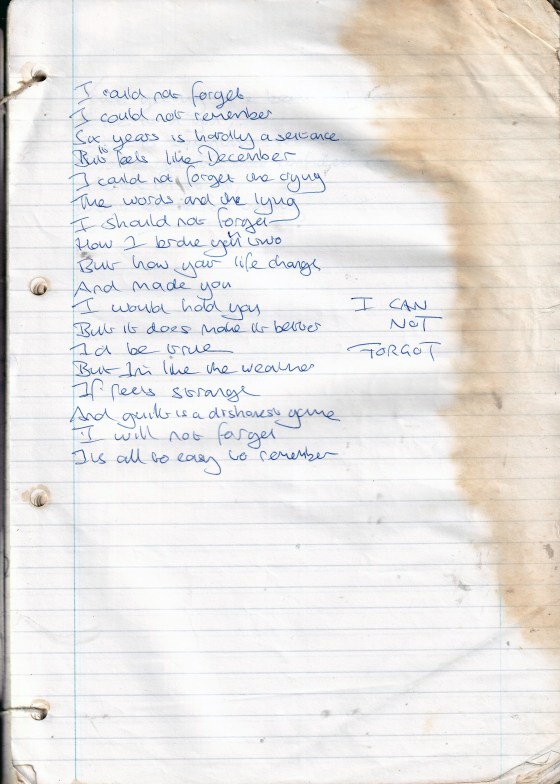 I could not forget
I could not remember
Six years is hardly a sentance
But it feels like December
I could not forget the crying
The words and the lying
I should not forget
How I broke you two
But how your life change
And made you
I would hold you
But it does make it better
I'd be true
But I'm like the weather
If feels strange
And guilt is a dishonest game
I will not forget
Its all to easy to remember
I CAN
NOT
FORGOT